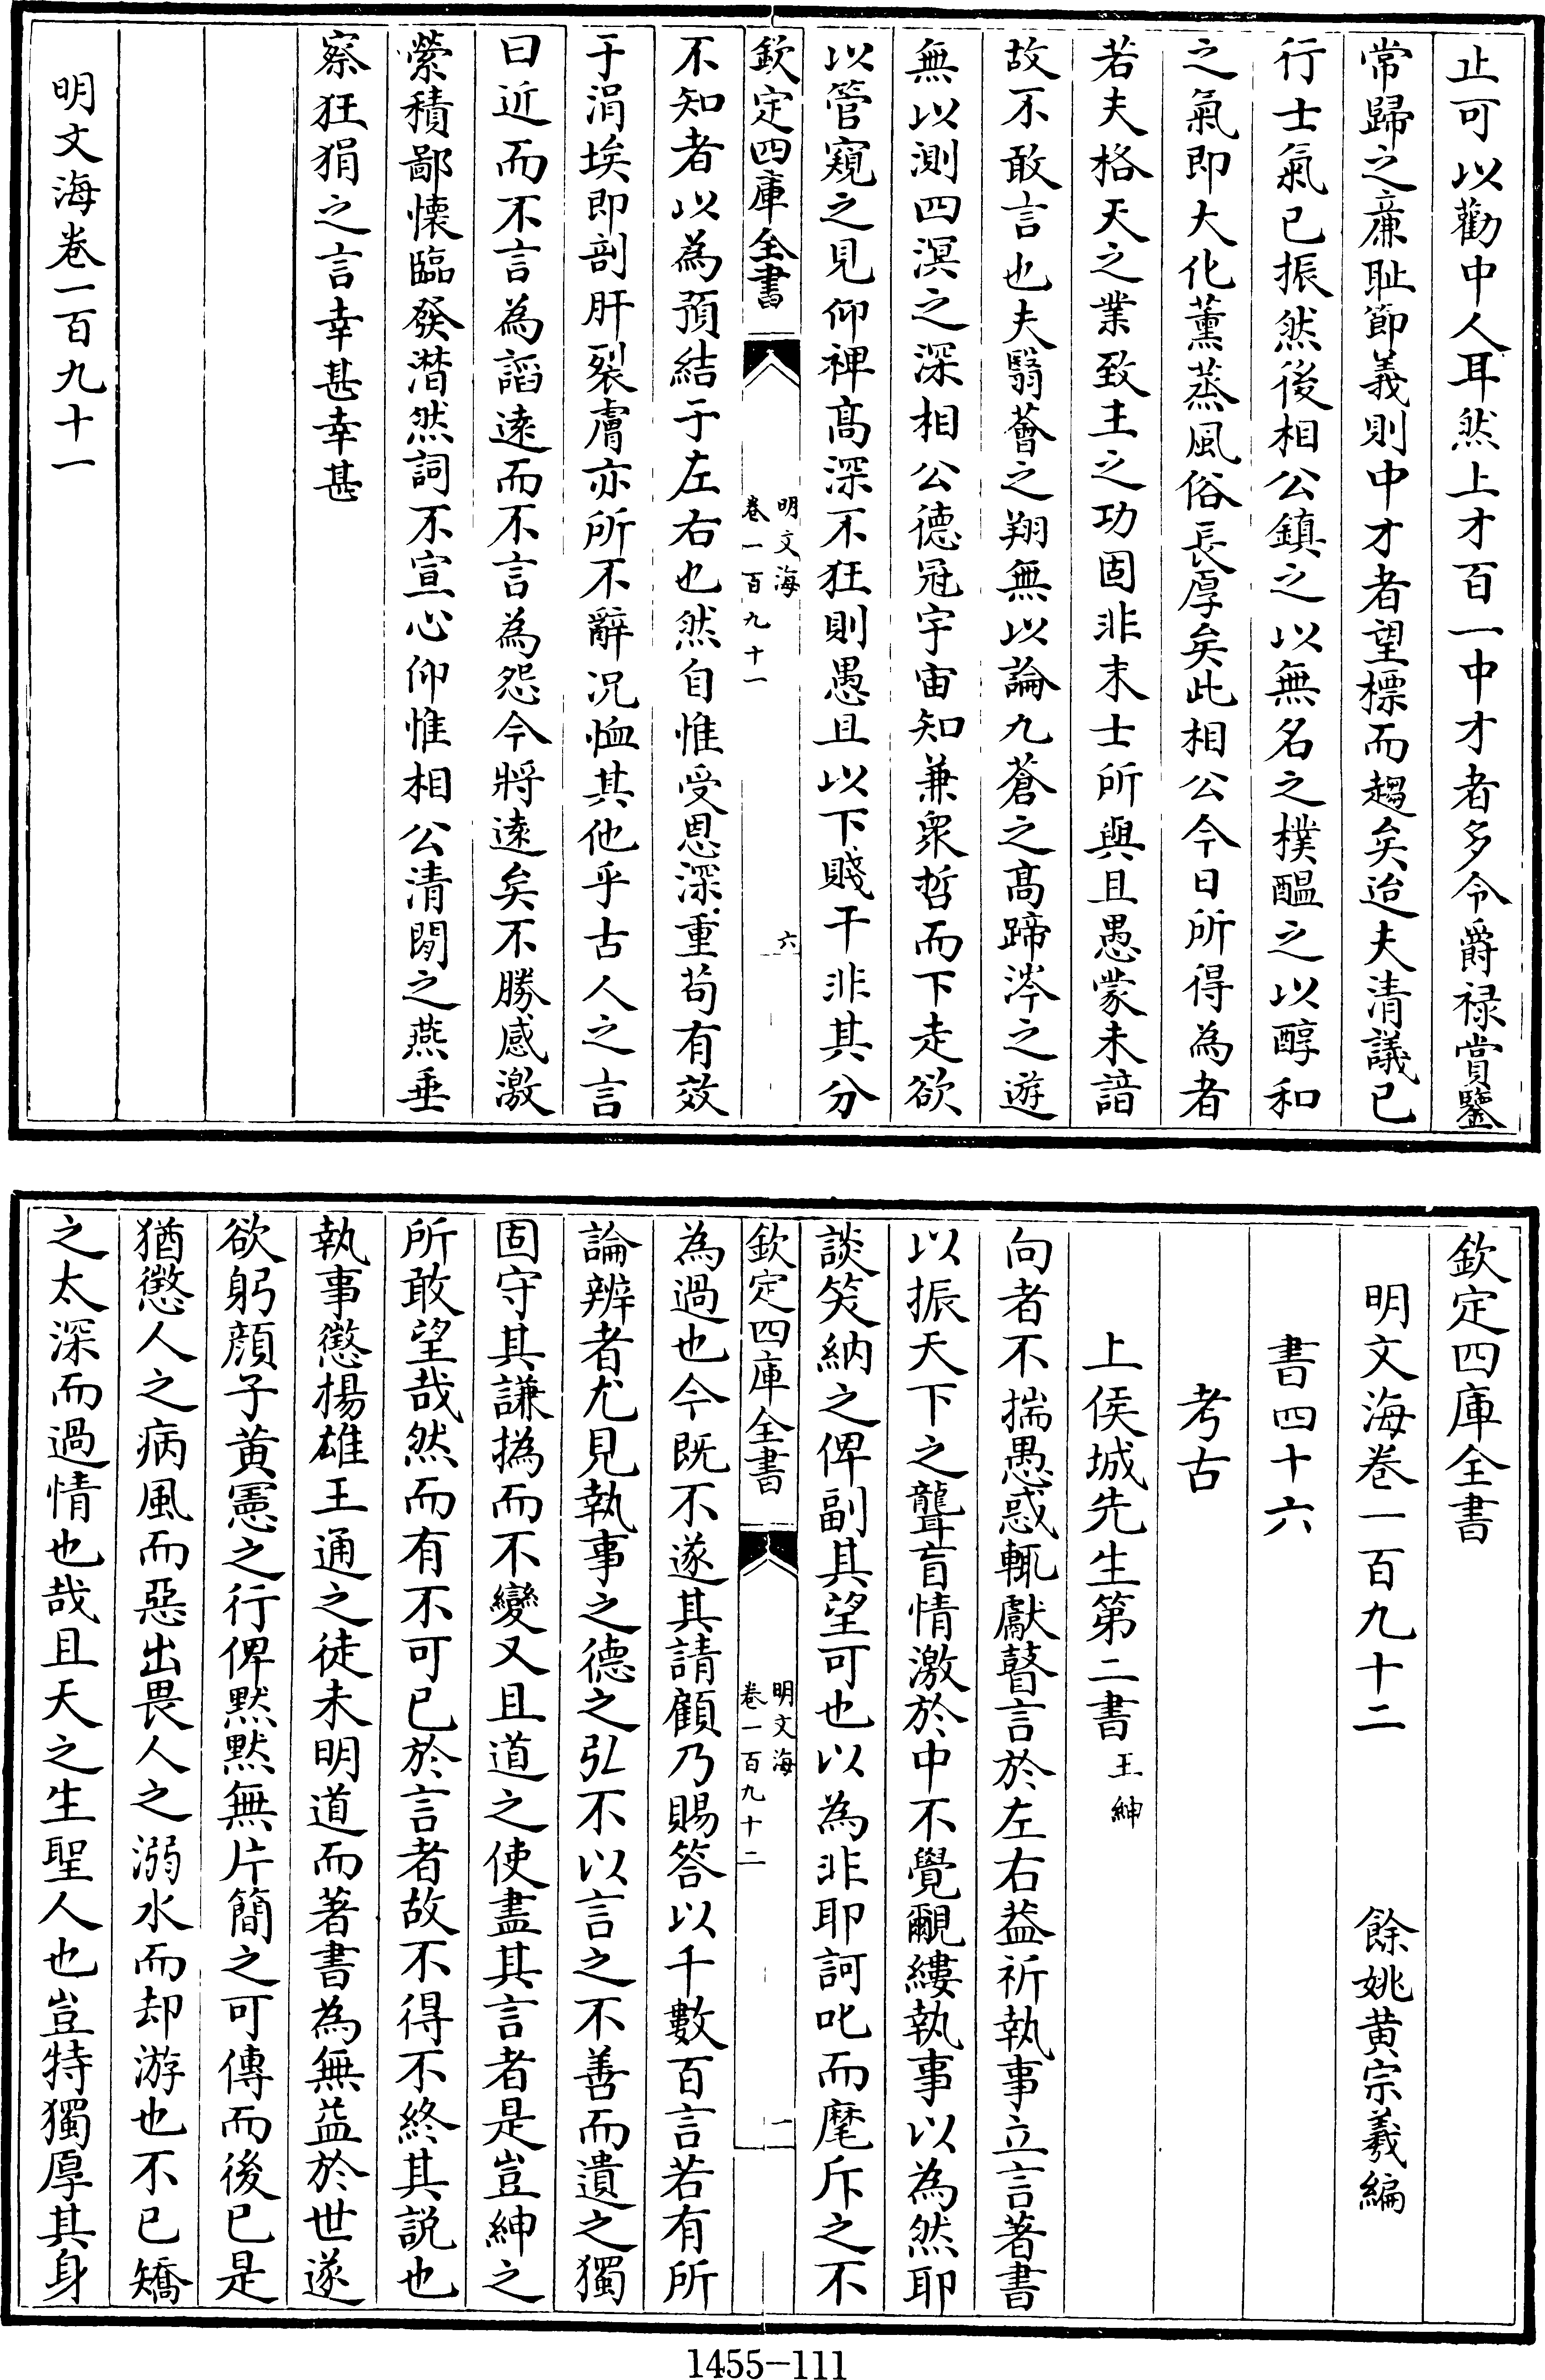 止可以勸中人耳然上才百一中才者多令爵禄賞鑒
常歸之亷耻節義則中才者望標而趨矣迨夫清議已
行士氣已振然後相公鎮之以無名之樸醖之以醇和
之氣即大化薫蒸風俗長厚矣此相公今日所得為者
若夫格天之業致主之功固非末士所與且愚蒙未諳
故不敢言也夫翳薈之翔無以論九蒼之高蹄涔之遊
無以測四溟之深相公德冠宇宙知兼衆哲而下走欲
以管窺之見仰裨高深不狂則愚且以下賤干非其分
欽定四庫全書
明文海
卷一百九十一
六
不知者以為預結于左右也然自惟受恩深重苟有效
于涓埃即剖肝裂膚亦所不辭况恤其他乎古人之言
曰近而不言為謟遠而不言為怨今將遠矣不勝感激
縈積鄙懐臨發潸然詞不宣心仰惟相公清閒之燕垂
察狂狷之言幸甚幸甚
明文海卷一百九十一
欽定四庫全書
明文海卷一百九十二 餘姚黄宗羲編
書四十六
考古
上侯城先生第二書 王紳
向者不揣愚惑輒獻瞽言於左右葢祈執事立言著書
以振天下之聾盲情激於中不覺覼縷執事以為然耶
談笑納之俾副其望可也以為非耶訶叱而麾斥之不
欽定四庫全書
明文海
卷一百九十二
二
為過也今既不遂其請顧乃賜答以千數百言若有所
論辨者尤見執事之德之弘不以言之不善而遺之獨
固守其謙撝而不變又且道之使盡其言者是豈紳之
所敢望哉然而有不可已於言者故不得不終其説也
執事懲楊雄王通之徒未明道而著書為無益於世遂
欲躬顔子黄憲之行俾黙黙無片簡之可傳而後已是
猶懲人之病風而惡出畏人之溺水而却游也不已矯
之太深而過情也哉且天之生聖人也豈特獨厚其身
1455-111